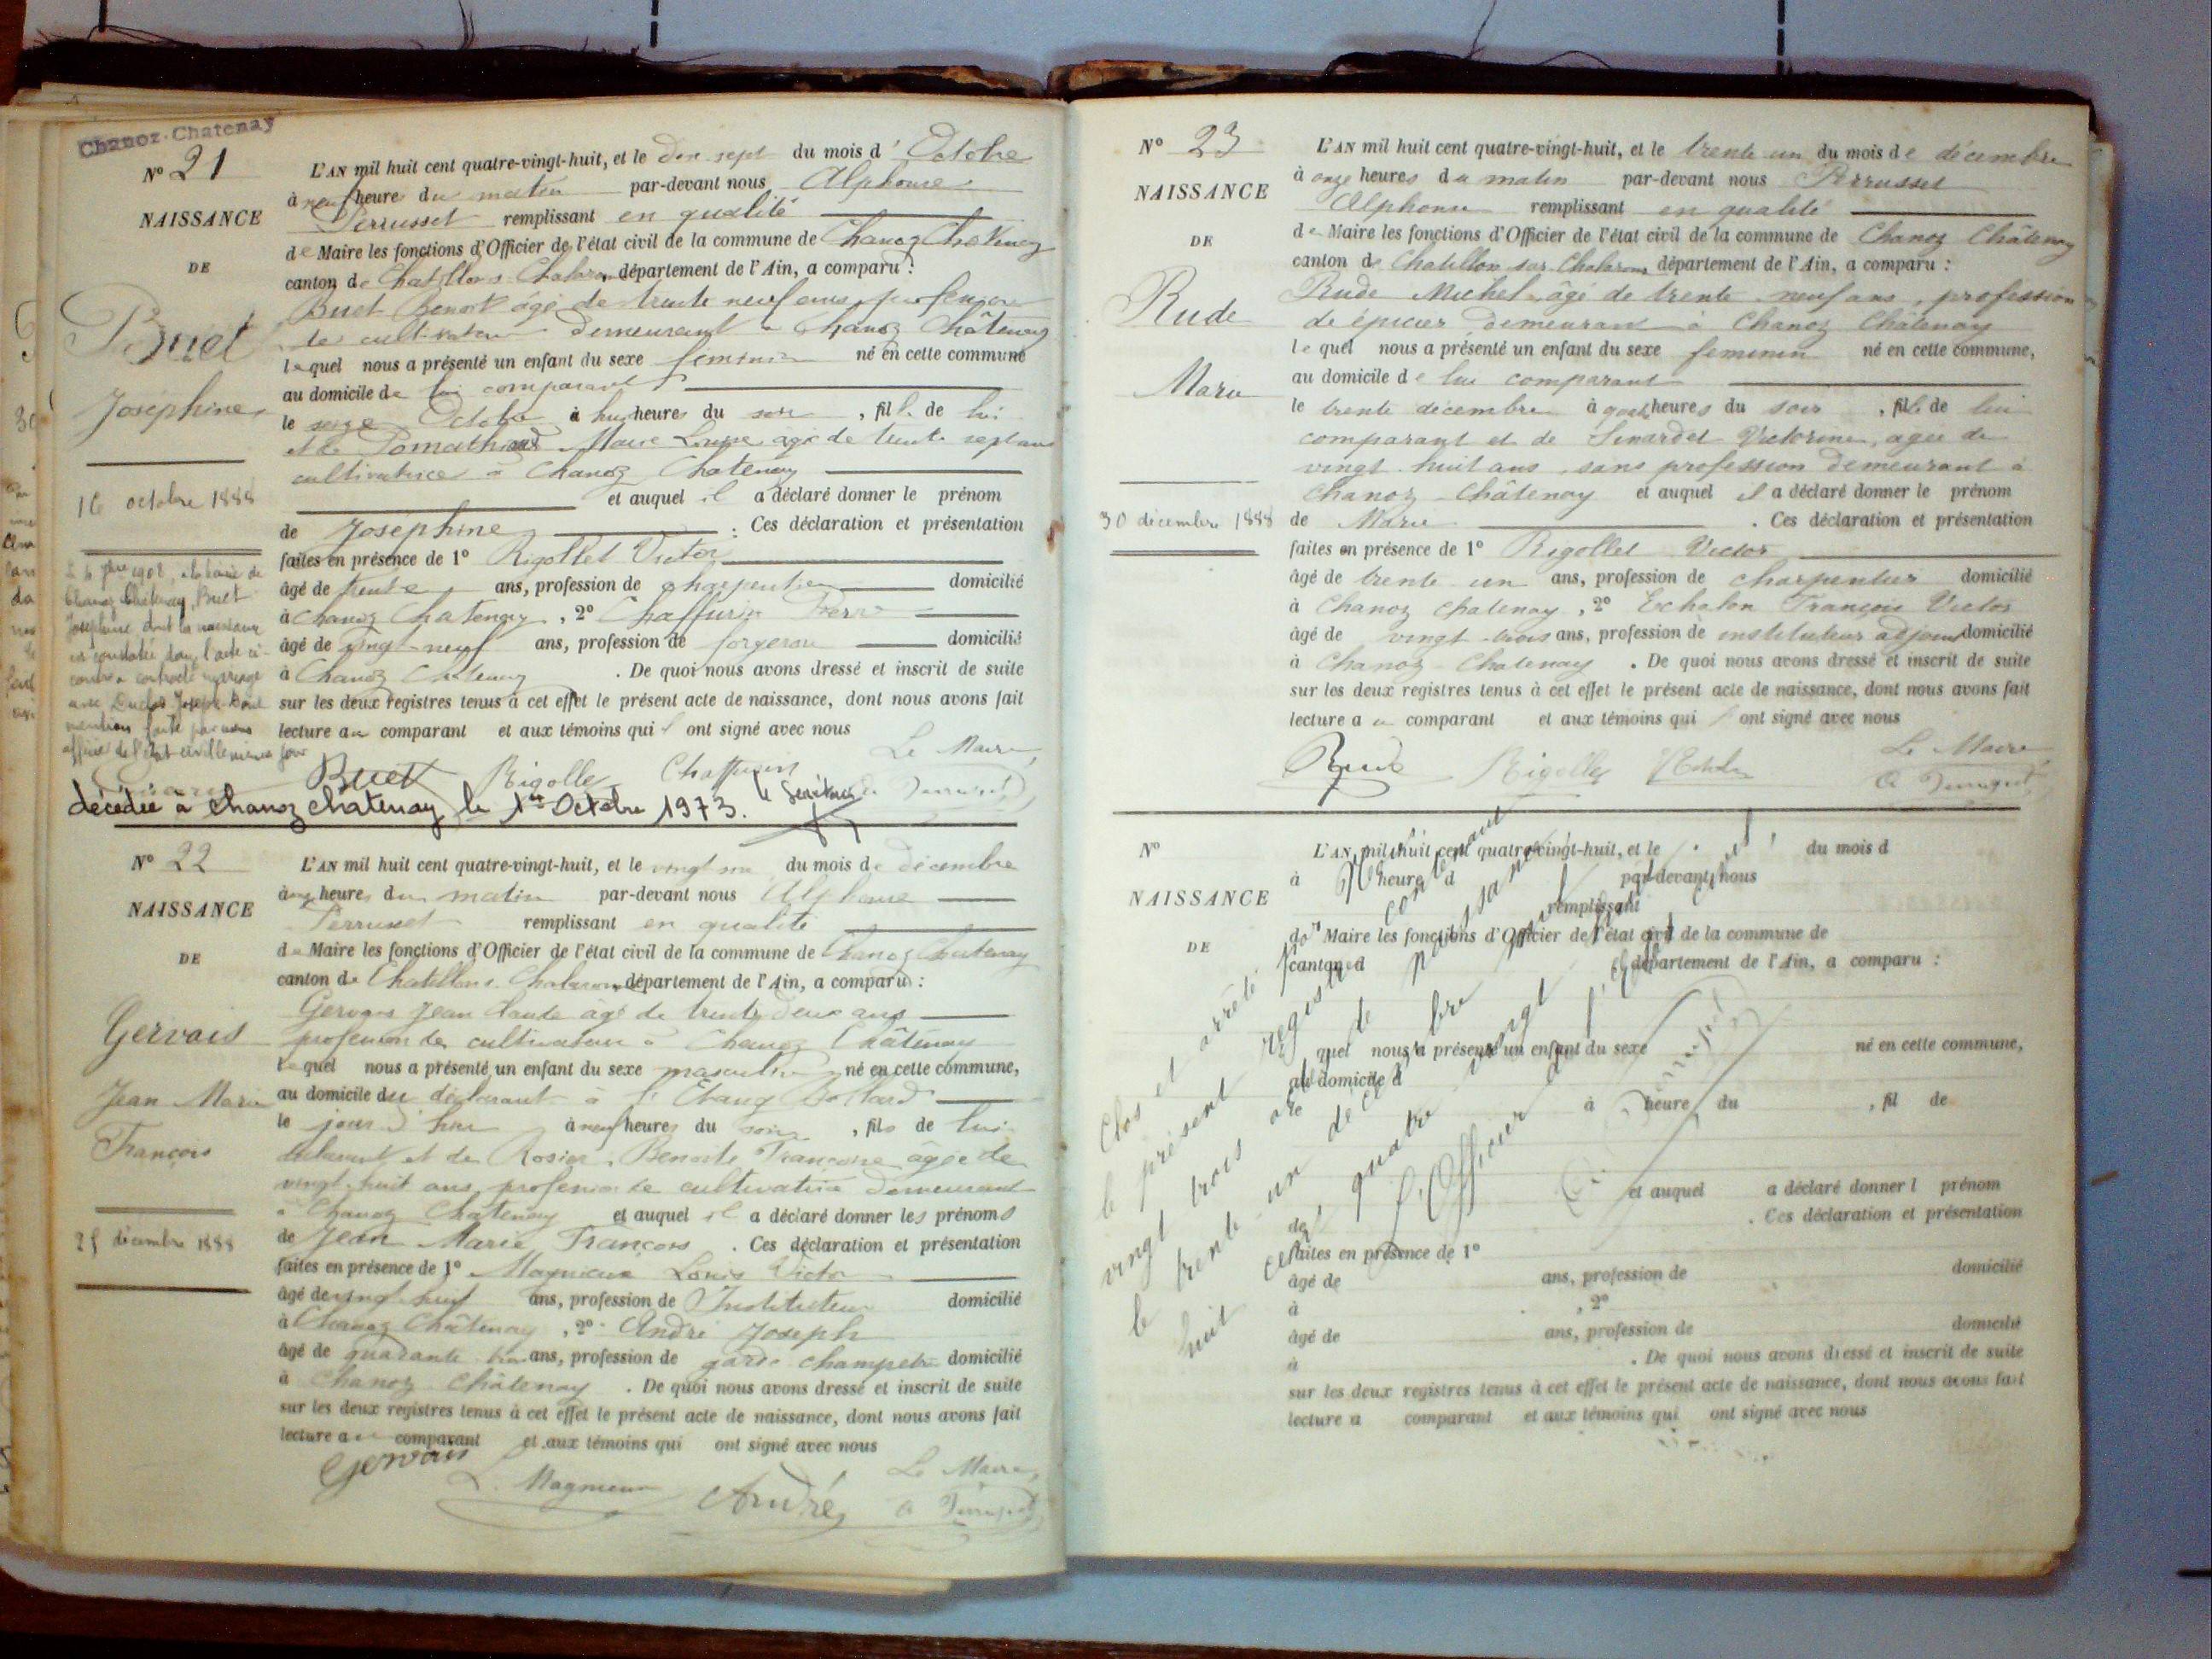 Chanoz-Chatenay
N° 21
NAISSANCE
DE
Buet
Joséphine
16 octobre 1888
L'AN mil huit cent quatre-vingt-huit, et le dix sept du mois d'Octobre
à neuf heure du matin par-devant nous Alphonse
Perrusset remplissant en qualité
de Maire les fonctions d'Officier de l'état civil de la commune de Chanoz Châtenay
canton de Chatillon s. Chalaronne, département de l'Ain, a comparu :
Buet Benoit âgé de trente neuf ans, profession
de cultivateur demeurant à Chanoz Châtenay
lequel nous a présenté un enfant du sexe féminin né en cette commune
au domicile de lui comparant
le seize Octobre à huit heures du soir, fille de lui
et de Marie Louise âgée de trente sept ans
cultivatrice à Chanoz Chatenay
et auquel il a déclaré donner le prénom
de Joséphine : Ces déclaration et présentation
faites en présence de 1° Rigollet Victor
âgé de trente ans, profession de charpentier domicilié
à Chanoz Chatenay, 2° Chaffurin Pierre
âgé de vingt-neuf ans, profession de forgeron domicilié
à Chanoz Chatenay. De quoi nous avons dressé et inscrit de suite
sur les deux registres tenus à cet effet le présent acte de naissance, dont nous avons fait
lecture au comparant et aux témoins qui ont signé avec nous
Le Maire,
Buet Rigollet Chaffurin
1908, à la mairie de
Chanoz Châtenay, Buet
Joséphine dont la naissance
est constatée dans l'acte ci-
contre a contracté mariage
avec Duclos Joseph. Dont
mention faite par nous
officier de l'état civil le même jour
décédée à Chanoz Chatenay le 1er Octobre 1973. le Secrétaire
N° 22
NAISSANCE
DE
Gervais
Jean Marie
François
25 décembre 1888
L'AN mil huit cent quatre-vingt-huit, et le vingt six du mois de décembre
à heures du matin par-devant nous Alphonse
Perrusset remplissant en qualité
de Maire les fonctions d'Officier de l'état civil de la commune de Chanoz Chatenay
canton de Chatillon s. Chalaronne, département de l'Ain, a comparu :
Gervais Jean Claude âgé de trente deux ans
profession de cultivateur à Chanoz Châtenay
lequel nous a présenté un enfant du sexe masculin né en cette commune,
au domicile du déclarant à l'Etang
le jour d'hier à neuf heures du soir, fils de lui
déclarant et de Rosier Benoite Françoise âgée de
vingt-huit ans, profession de cultivatrice demeurant
à Chanoz Chatenay et auquel il a déclaré donner les prénoms
de Jean Marie François. Ces déclaration et présentation
faites en présence de 1° Magnieux Louis Victor
âgé de vingt huit ans, profession de Instituteur domicilié
à Chanoz Châtenay, 2° André Joseph
âgé de quarante ans, profession de garde champêtre domicilié
à Chanoz Châtenay. De quoi nous avons dressé et inscrit de suite
sur les deux registres tenus à cet effet le présent acte de naissance, dont nous avons fait
lecture au comparant et aux témoins qui ont signé avec nous
Gervais
L. Magnieux André
Le Maire,
N° 23
NAISSANCE
DE
Rude
Marie
30 décembre 1888
L'AN mil huit cent quatre-vingt-huit, et le trente un du mois de décembre
à onze heures du matin par-devant nous Perrusset
Alphonse remplissant en qualité
de Maire les fonctions d'Officier de l'état civil de la commune de Chanoz Châtenay
canton de Chatillon sur Chalaronne, département de l'Ain, a comparu :
Rude Michel âgé de trente neuf ans, profession
de épicier demeurant à Chanoz Châtenay
lequel nous a présenté un enfant du sexe féminin né en cette commune,
au domicile de lui comparant
le trente décembre à quatre heures du soir, fille de lui
comparant et de Sinardet Victorine, âgée de
vingt-huit ans, sans profession demeurant à
Chanoz-Châtenay et auquel il a déclaré donner le prénom
de Marie. Ces déclaration et présentation
faites en présence de 1° Rigollet Victor
âgé de trente un ans, profession de charpentier domicilié
à Chanoz Chatenay, 2° Echalon François Victor
âgé de vingt-trois ans, profession de instituteur adjoint domicilié
à Chanoz-Chatenay. De quoi nous avons dressé et inscrit de suite
sur les deux registres tenus à cet effet le présent acte de naissance, dont nous avons fait
lecture au comparant et aux témoins qui ont signé avec nous
Le Maire
Rude Rigollet
N°
NAISSANCE
DE
L'AN mil huit cent quatre-vingt-huit, et le du mois d
à heure d par-devant nous
remplissant
d Maire les fonctions d'Officier de l'état civil de la commune de
canton d département de l'Ain, a comparu :
quel nous a présenté un enfant du sexe né en cette commune,
au domicile d
le à heure du , fil de
et auquel a déclaré donner l prénom
de . Ces déclaration et présentation
faites en présence de 1°
âgé de ans, profession de domicilié
à , 2°
âgé de ans, profession de domicilié
à . De quoi nous avons dressé et inscrit de suite
sur les deux registres tenus à cet effet le présent acte de naissance, dont nous avons fait
lecture a comparant et aux témoins qui ont signé avec nous
Clos et arrêté par
le présent registre contenant
vingt trois actes de naissance
le trente un décembre
huit cent quatre vingt
l'Officier de l'état civil